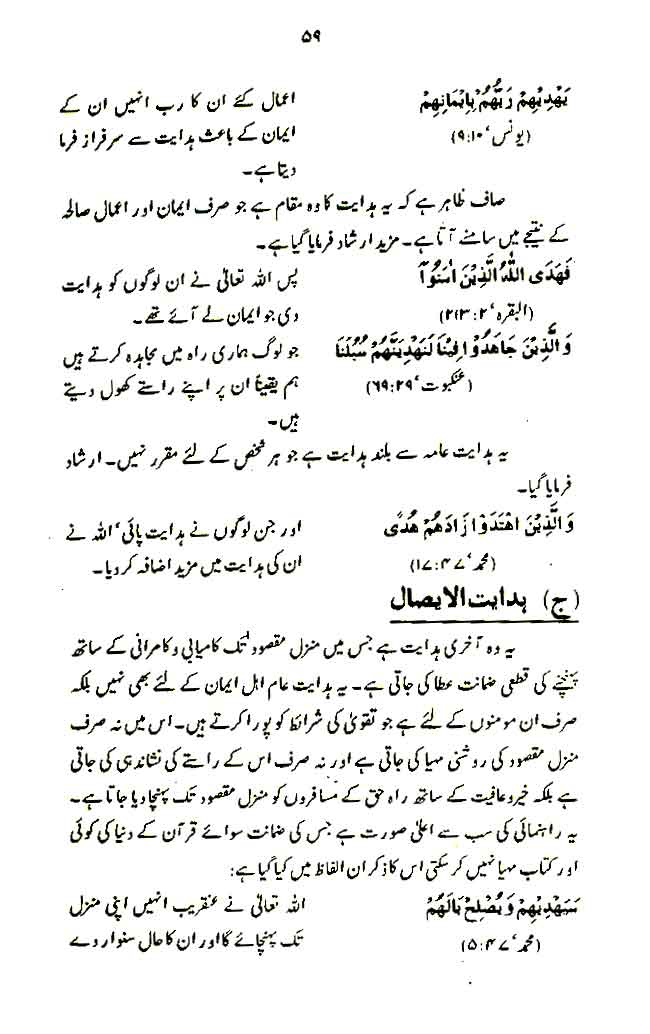 ۵۹
یَهْدِیْهِمْ رَبُّهُمْ بِاِیْمَانِهِمْ
(یونس‘ ۱۰:۹)
اعمال کئے ان کا رب انہیں ان کے
ایمان کے باعث ہدایت سے سرفراز فرما
دیتا ہے۔
صاف ظاہر ہے کہ یہ ہدایت کا وہ مقام ہے جو صرف ایمان اور اعمال صالحہ
کے نتیجے میں سامنے آتا ہے۔ مزید ارشاد فرمایا گیا ہے۔
فَهَدَی اللّٰهُ الَّذِیْنَ اٰمَنُوْآ
(البقرہ‘ ۲:۲۱۳)
پس اللہ تعالیٰ نے ان لوگوں کو ہدایت
دی جو ایمان لے آئے تھے۔
وَ الَّذِیْنَ جَاهَدُوْا فِیْنَا لَنَهْدِیَنَّهُمْ سُبُلَنَا
(عنکبوت‘ ۲۹:۶۹)
جو لوگ ہماری راہ میں مجاہدہ کرتے ہیں
ہم یقیناً ان پر اپنے راستے کھول دیتے
ہیں۔
یہ ہدایت عامہ سے بلند ہدایت ہے جو ہر شخص کے لئے مقرر نہیں۔ ارشاد
فرمایا گیا۔
وَ الَّذِیْنَ اهْتَدَوْا زَادَهُمْ هُدًی
(محمد‘ ۴۷:۱۷)
اور جن لوگوں نے ہدایت پائی‘ اللہ نے
ان کی ہدایت میں مزید اضافہ کر دیا۔
(ج) ہدایت الایصال
یہ وہ آخری ہدایت ہے جس میں منزل مقصود تک کامیابی و کامرانی کے ساتھ
پہنچنے کی قطعی ضمانت عطا کی جاتی ہے۔ یہ ہدایت عام اہل ایمان کے لئے بھی نہیں بلکہ
صرف ان مومنوں کے لئے ہے جو تقویٰ کی شرائط کو پورا کرتے ہیں۔ اس میں نہ صرف
منزل مقصود کی روشنی مہیا کی جاتی ہے اور نہ صرف اس کے راستے کی نشاندہی کی جاتی
ہے بلکہ خیر و عافیت کے ساتھ راہ حق کے مسافروں کو منزل مقصود تک پہنچا دیا جاتا ہے۔
یہ راہنمائی کی سب سے اعلیٰ صورت ہے جس کی ضمانت سوائے قرآن کے دنیا کی کوئی
اور کتاب مہیا نہیں کر سکتی اس کا ذکر ان الفاظ میں کیا گیا ہے:
سَیَهْدِیْهِمْ وَ یُصْلِحُ بَالَهُمْ
(محمد‘ ۴۷:۵)
اللہ تعالیٰ نے عنقریب انہیں اپنی منزل
تک پہنچائے گا اور ان کا حال سنوار دے